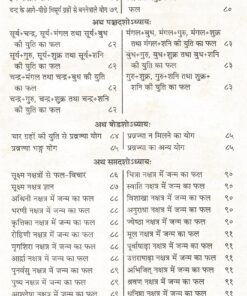 चन्द्र के आगे-पीछे त्रिपूर्ण ग्रहों से बननेवाले योग ७९
फल ८०
अथ पञ्चदशोऽध्यायः
सूर्य+चन्द्र, सूर्य+मंगल तथा सूर्य+बुध
की युति का फल ८२
सूर्य+गुरु, सूर्य+शुक्र तथा सूर्य+शनि
की युति का फल ८२
चन्द्र+मंगल तथा चन्द्र+बुध की युति
का फल ८२
चन्द्र+गुरु, चन्द्र+शुक्र तथा चन्द्र+शनि
की युति का फल ८२
मंगल+बुध, मंगल+गुरु, मंगल+शुक्र
तथा मंगल+शनि की युति का फल ८३
बुध+गुरु, बुध+शुक्र तथा बुध+शनि
की युति का फल ८३
गुरु+शुक्र, गुरु+शनि तथा शुक्र+शनि
की युति का फल ८३
अथ षोडशोऽध्यायः
चार ग्रहों की युति से प्रव्रज्या योग ८४
प्रव्रज्या भङ्ग योग ८५
प्रव्रज्या न मिलने का योग ८५
प्रव्रज्या का अन्य योग ८५
अथ सप्तदशोऽध्यायः
सूक्ष्म नक्षत्रों से फल-विचार ८६
सूक्ष्म नक्षत्र ज्ञान ८७
अश्विनी नक्षत्र में जन्म का फल ८८
भरणी नक्षत्र में जन्म का फल ८८
कृत्तिका नक्षत्र में जन्म का फल ८८
रोहिणी नक्षत्र में जन्म का फल ८८
मृगशिरा नक्षत्र में जन्म का फल ८८
आर्द्रा नक्षत्र में जन्म का फल ८८
पुनर्वसु नक्षत्र में जन्म का फल ८९
पुष्य नक्षत्र में जन्म का फल ८९
आश्लेषा नक्षत्र में जन्म का फल
चित्रा नक्षत्र में जन्म का फल
स्वाति नक्षत्र में जन्म का फल
विशाखा नक्षत्र में जन्म का फल
अनुराधा नक्षत्र में जन्म का फल
ज्येष्ठा नक्षत्र में जन्म का फल
मूल नक्षत्र में जन्म का फल
पूर्वाषाढ़ा नक्षत्र में जन्म का फल
उत्तराषाढ़ा नक्षत्र में जन्म का फल
अभिजित् नक्षत्र में जन्म का फल
श्रवण नक्षत्र में जन्म का फल
धनिष्ठा नक्षत्र में जन्म का फल